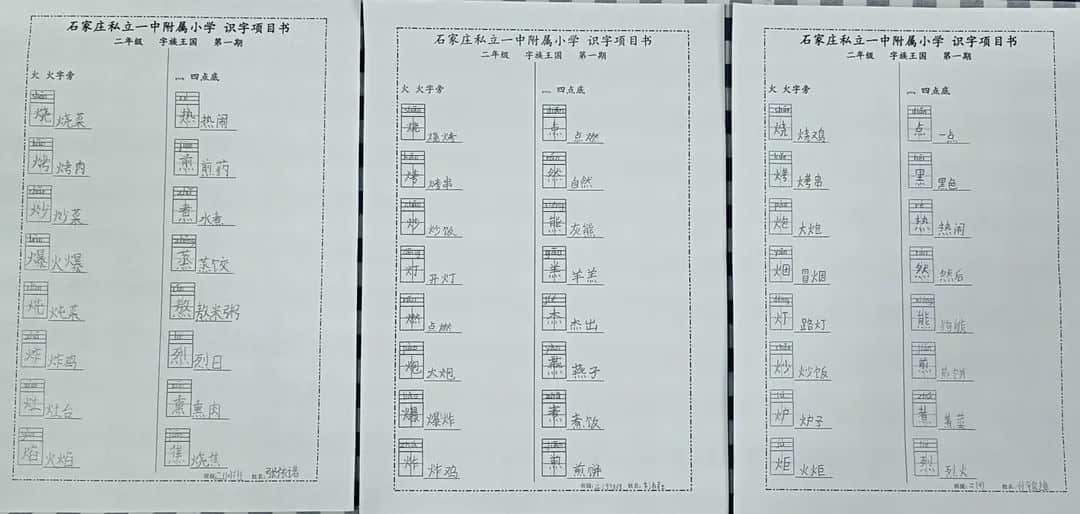 石家庄私立一中附属小学 识字项目书
二年级 字族王国 第一期
火 火字旁 灬 四点底
烧 烧菜 热 热闹
烤 烤肉 煎 煎药
炒 炒菜 煮 水煮
爆 火爆 蒸 蒸饺
炖 炖菜 熬 熬米粥
炸 炸鸡 烈 烈日
灶 灶台 熏 熏肉
焰 火焰 焦 烧焦
班级: 姓名:
石家庄私立一中附属小学 识字项目书
二年级 字族王国 第一期
火 火字旁 灬 四点底
烧 烧烤 点 点燃
烤 烤串 然 自然
炒 炒饭 熊 灰熊
灯 开灯 羔 羊羔
燃 点燃 杰 杰出
炮 大炮 燕 燕子
爆 爆炸 煮 煮饭
炸 炸鸡 煎 煎饼
班级: 姓名:
石家庄私立一中附属小学 识字项目书
二年级 字族王国 第一期
火 火字旁 灬 四点底
烧 烧鸡 点 一点
烤 烤串 黑 黑色
炮 大炮 热 热闹
烟 冒烟 然 然后
灯 路灯 熊 狗熊
炒 炒饭 煎 煎饼
炉 炉子 煮 煮菜
炬 火炬 烈 烈火
班级: 姓名: